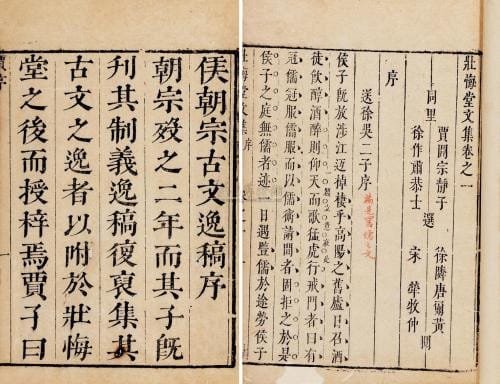 壯悔堂文集卷之一
賈開宗靜子 徐隣唐爾黃
同里 選 閱
徐作肅恭士 宋犖牧仲
序
送徐吳二子序
侯子旣放涉江返棹棲乎高陽之舊廬日召酒
徒飲醇酒醉則仰天而歌猛虎行戒門者曰有
冠儒冠服儒服而以儒術請問者固拒之於是
侯子之庭無儒者迹一日遇豎儒於途勞侯子
壯悔堂文集 序
侯朝宗古文逸稿序
朝宗歿之二年而其子旣
刋其制義逸稿復裒集其
古文之逸者以附於壯悔
堂之後而授梓焉賈子曰